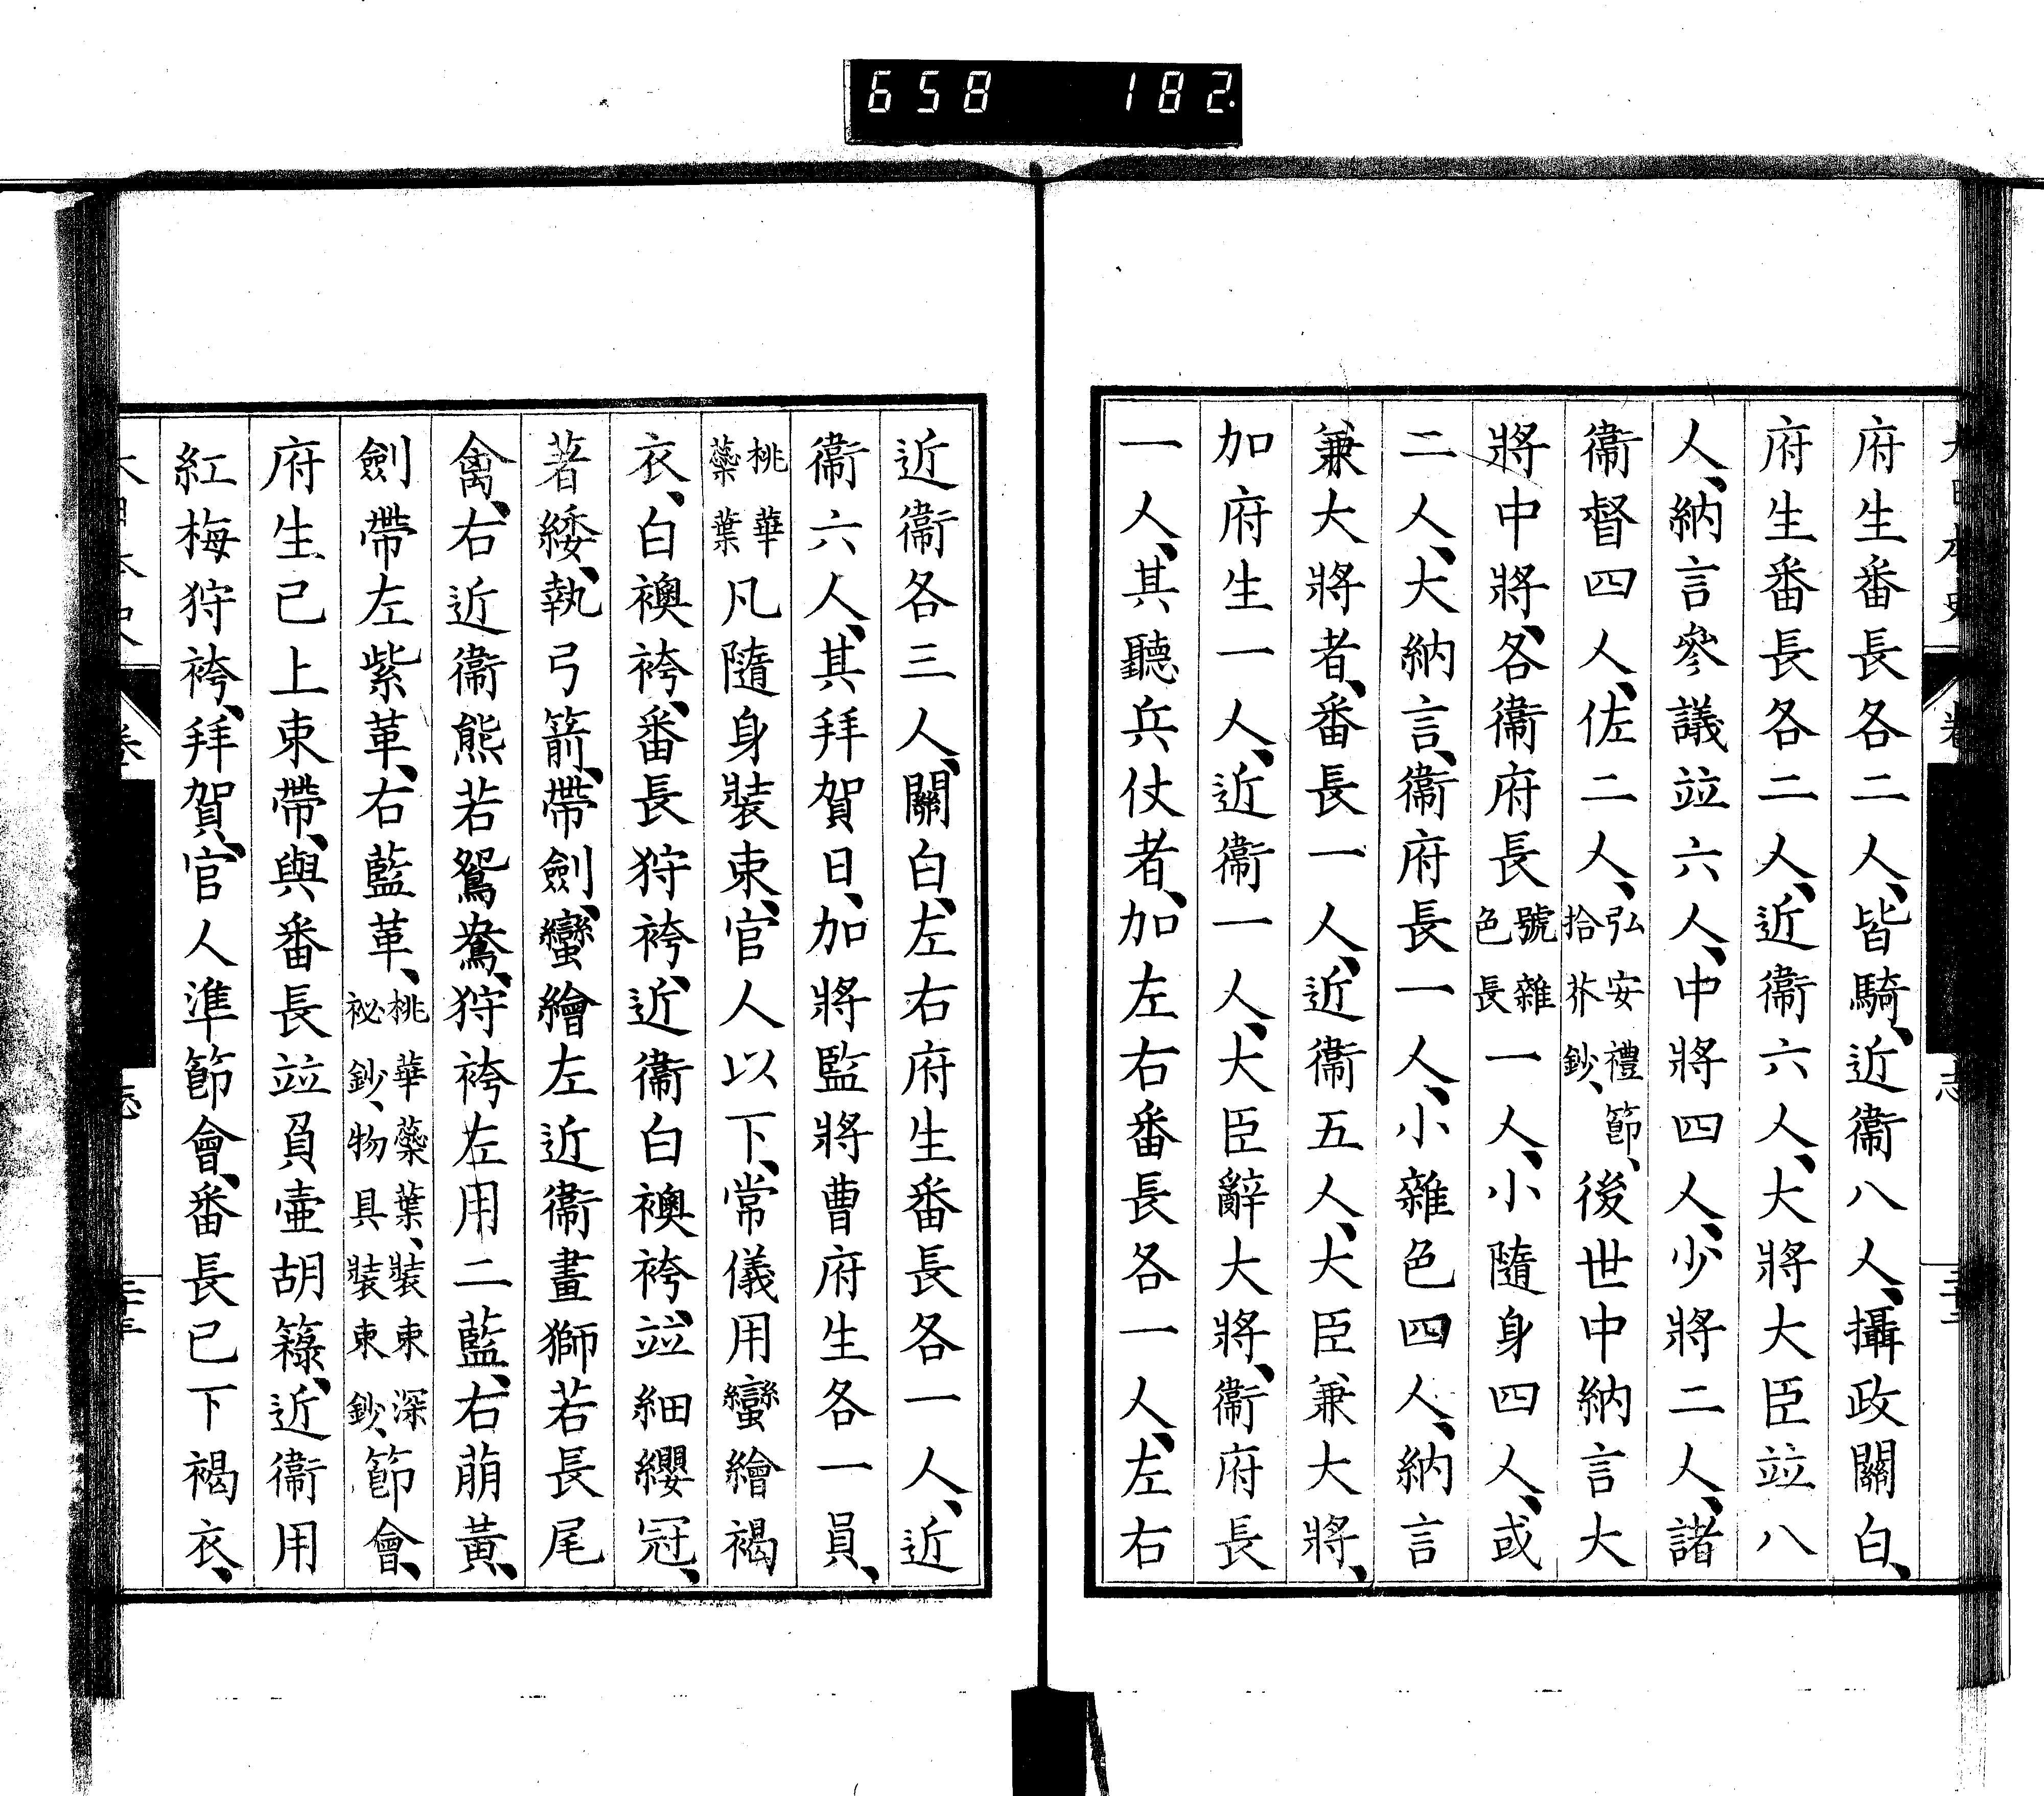 658 182.
府生番長各二人、皆騎、近衞八人、攝政關白、
府生番長各二人、近衞六人、大將大臣竝八
人、納言參議竝六人、中將四人、少將二人、諸
衞督四人、佐二人、弘安禮節、拾芥鈔、後世中納言大
將中將、各衞府長號雜色長一人、小隨身四人、或
二人、大納言、衞府長一人、小雜色四人、納言
兼大將者、番長一人、近衞五人、大臣兼大將、
加府生一人、近衞一人、大臣辭大將、衞府長
一人、其聽兵仗者、加左右番長各一人、左右
近衞各三人、關白、左右府生番長各一人、近
衞六人、其拜賀日、加將監將曹府生各一員、
桃華蘂葉凡隨身裝束、官人以下、常儀用蠻繪褐
衣、白襖袴、番長狩袴、近衞白襖袴、竝細纓冠、
著緌、執弓箭、帶劍、蠻繪左近衞畫獅若長尾
禽、右近衞熊若鴛鴦、狩袴左用二藍、右萠黃、
劍帶左紫革、右藍革、桃華蘂葉、裝束深祕鈔、物具裝束鈔、節會、
府生已上束帶、與番長竝負壷胡籙、近衞用
紅梅狩袴、拜賀、官人準節會、番長已下褐衣、
大日本史 卷 志